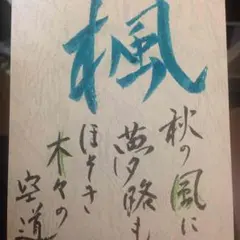 楓
秋の風に
夢路も
ほそき
木々の
空道